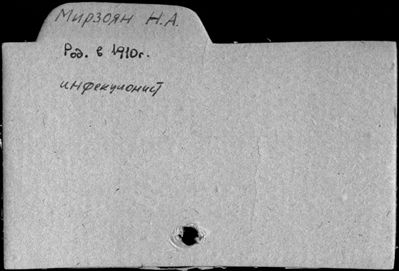 Мирзоян Н.А.
Род. в 1910г.
инфекционист